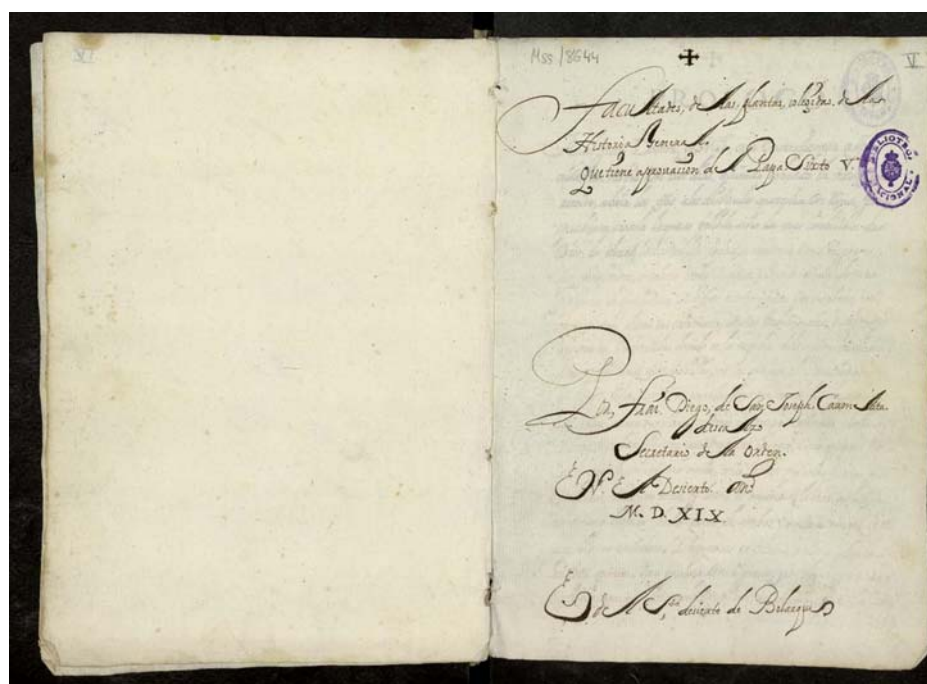 VI
Mss/8644
V
Facultades, de las plantas, colegidas. de la
Historia General.
Que tiene aprouacion del Papa Sixto V.
BIBLIOTECA NACIONAL
Por, frai Diego, de San, Joseph. Carmelita.
descalzo
Secretario de la orden.
EN. El Desierto. Año
M. D. XIX.
Es del S.to desierto de Bolarque